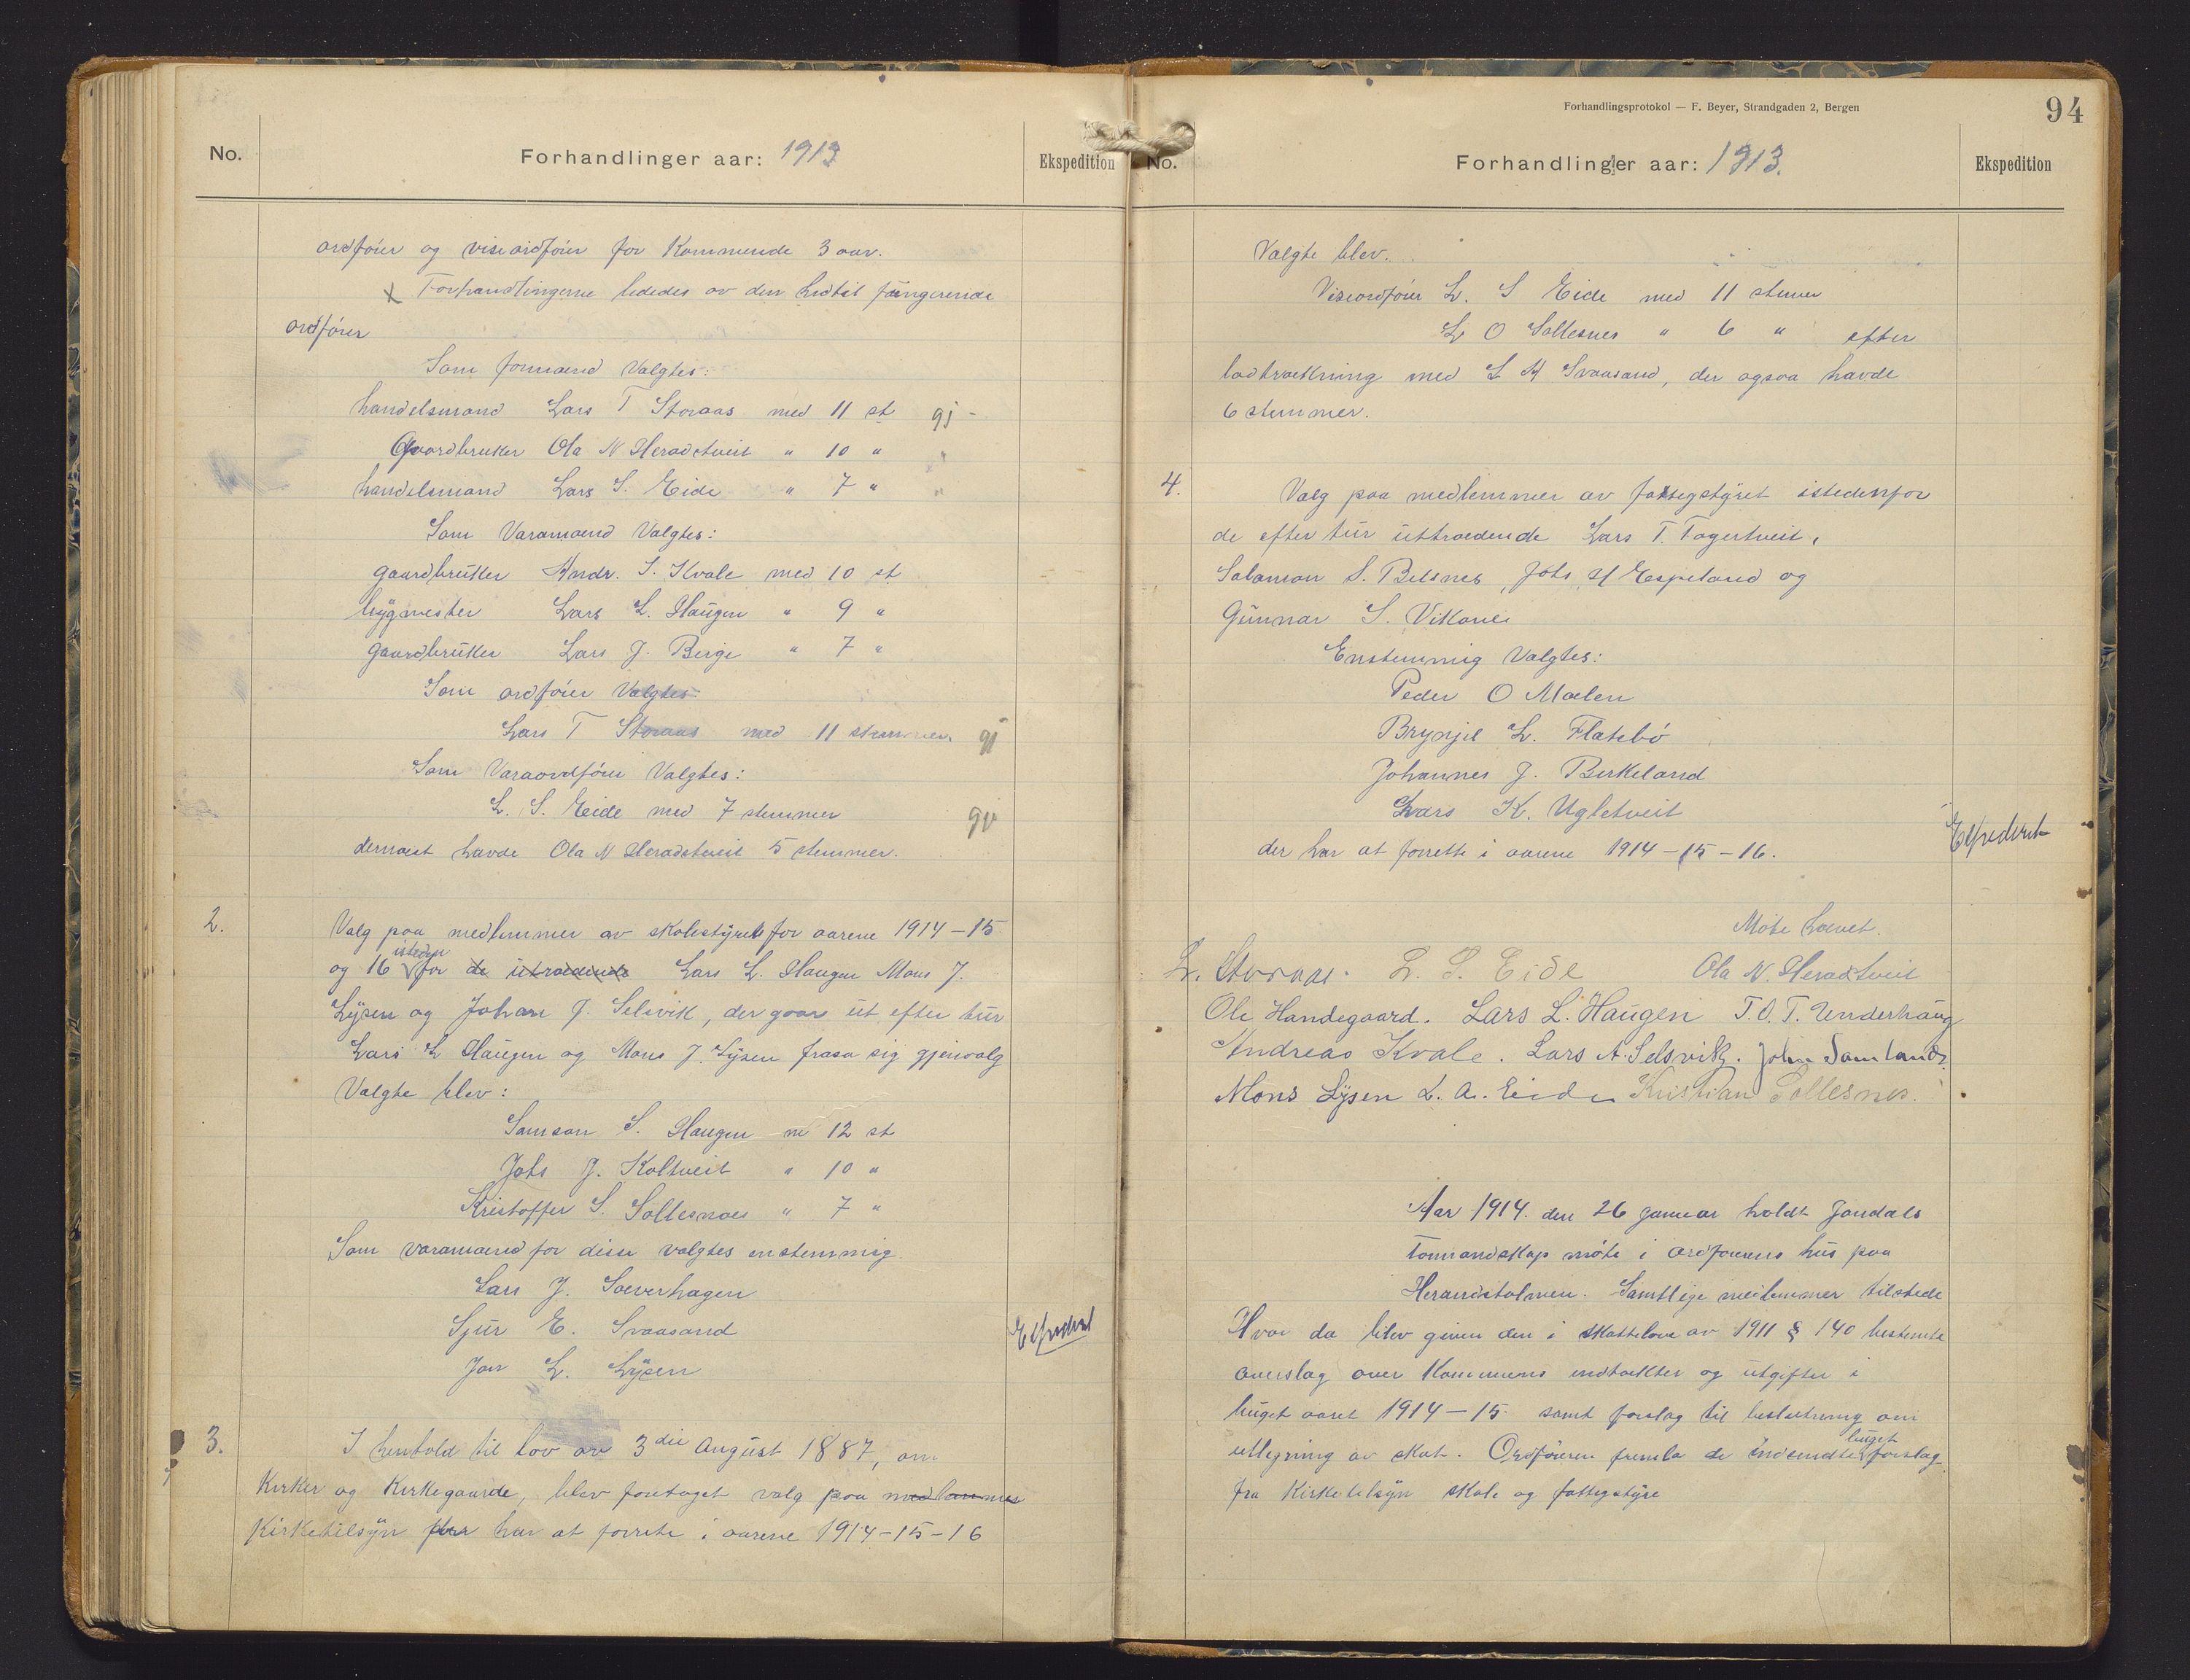 No.
Forhandlinger aar: 1913
Ekspedition
ordfører og viseordfører for Kommende 3 aar.
x Forhandlingerne lededes av den hidtil fungerende
ordfører
Som formænd Valgtes:
handelsmand Lars T Storaas med 11 st gj -
Gaardbruker Ola N Heradstveit " 10 " "
handelsmand Lars S. Eide " 7 " "
Som Varamænd Valgtes:
gaardbruker Andr. S. Kvale med 10 st
bygmester Lars L. Haugen " 9 "
gaardbruker Lars J. Berge " 7 "
Som ordfører Valgtes
Lars T Storaas med 11 stemmer gj
Som Varaordfører Valgtes:
L. S. Eide med 7 stemmer gj
dernæst havde Ola N Heradstveit 5 stemmer.
2.
Valg paa medlemmer av skolestyret for aarene 1914-15
og 16 isteden for de utrædende Lars L. Haugen Mons J.
Lysen og Johan J. Selsvik, der gaar ut efter tur
Lars L Haugen og Mons J. Lysen frasa sig gjenvalg
Valgte blev:
Samson S. Haugen m 12 st
Johs J. Koltveit " 10 "
Kristoffer S. Sollesnæs " 7 "
Som varamænd for disse valgtes enstemmig
Lars J. Sæverhagen
Sjur E. Svaasand
Jon L. Lysen
Expedert
3.
I henhold til lov av 3die August 1887, om
Kirker og Kirkegaarde, blev foretaget valg paa medlemmer
Kirketilsyn der har at forrette i aarene 1914-15-16
Forhandlingsprotokol — F. Beyer, Strandgaden 2, Bergen
94
No.
Forhandlinger aar: 1913.
Ekspedition
Valgte blev.
Viseordfører L. S Eide med 11 stemmer
L O Sollesnes " 6 " efter
lodtrækning med L A Svaasand, der ogsaa havde
6 stemmer.
4.
Valg paa medlemmer av fattigstyret istedenfor
de efter tur uttrædende Lars T. Togertveit,
Salamon S. Belsnes, Johs H Espeland og
Gunnar S. Vikane
Enstemmig Valgtes:
Peder O Mælen
Brynjel L. Flatebø
Johannes J. Birkeland
Lars K. Ugletveit
der har at forrette i aarene 1914-15-16.
Expederet
Møte hævet.
L. Storaas. L. S. Eide Ola N. Heradstveit
Ole Handegaard. Lars L. Haugen T. O. T. Underhaug
Andreas Kvale. Lars A. Selsvik. John Samland.
Mons Lysen L. A. Eide Kristian Sollesnes.
Aar 1914. den 26 januar holdt Jondals
formandskap møte i ordførerens hus paa
Herandsholmen. Samtlige medlemmer tilstede
Hvor da blev given den i skattelove av 1911 § 140 bestemte
overslag over Kommunens indtækter og utgifter i
buget aaret 1914-15 samt forslag til beslutning om
utligning av skat. Ordføreren fremla de indsendte buget forslag
fra Kirketilsyn skole og fattigstyre